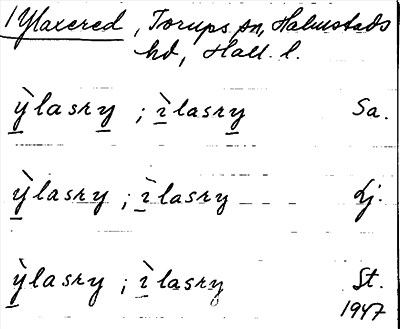 1 Ylaxered, Torups sn, Halmstads
hd, Hall. l.
ỳ̲lasry̲ ; ı̲̀lasry̲ Sa.
ỳ̲lasry ; ı̲̀lasry Lj.
ỳ̲lasry ; ı̲̀lasry St.
1947